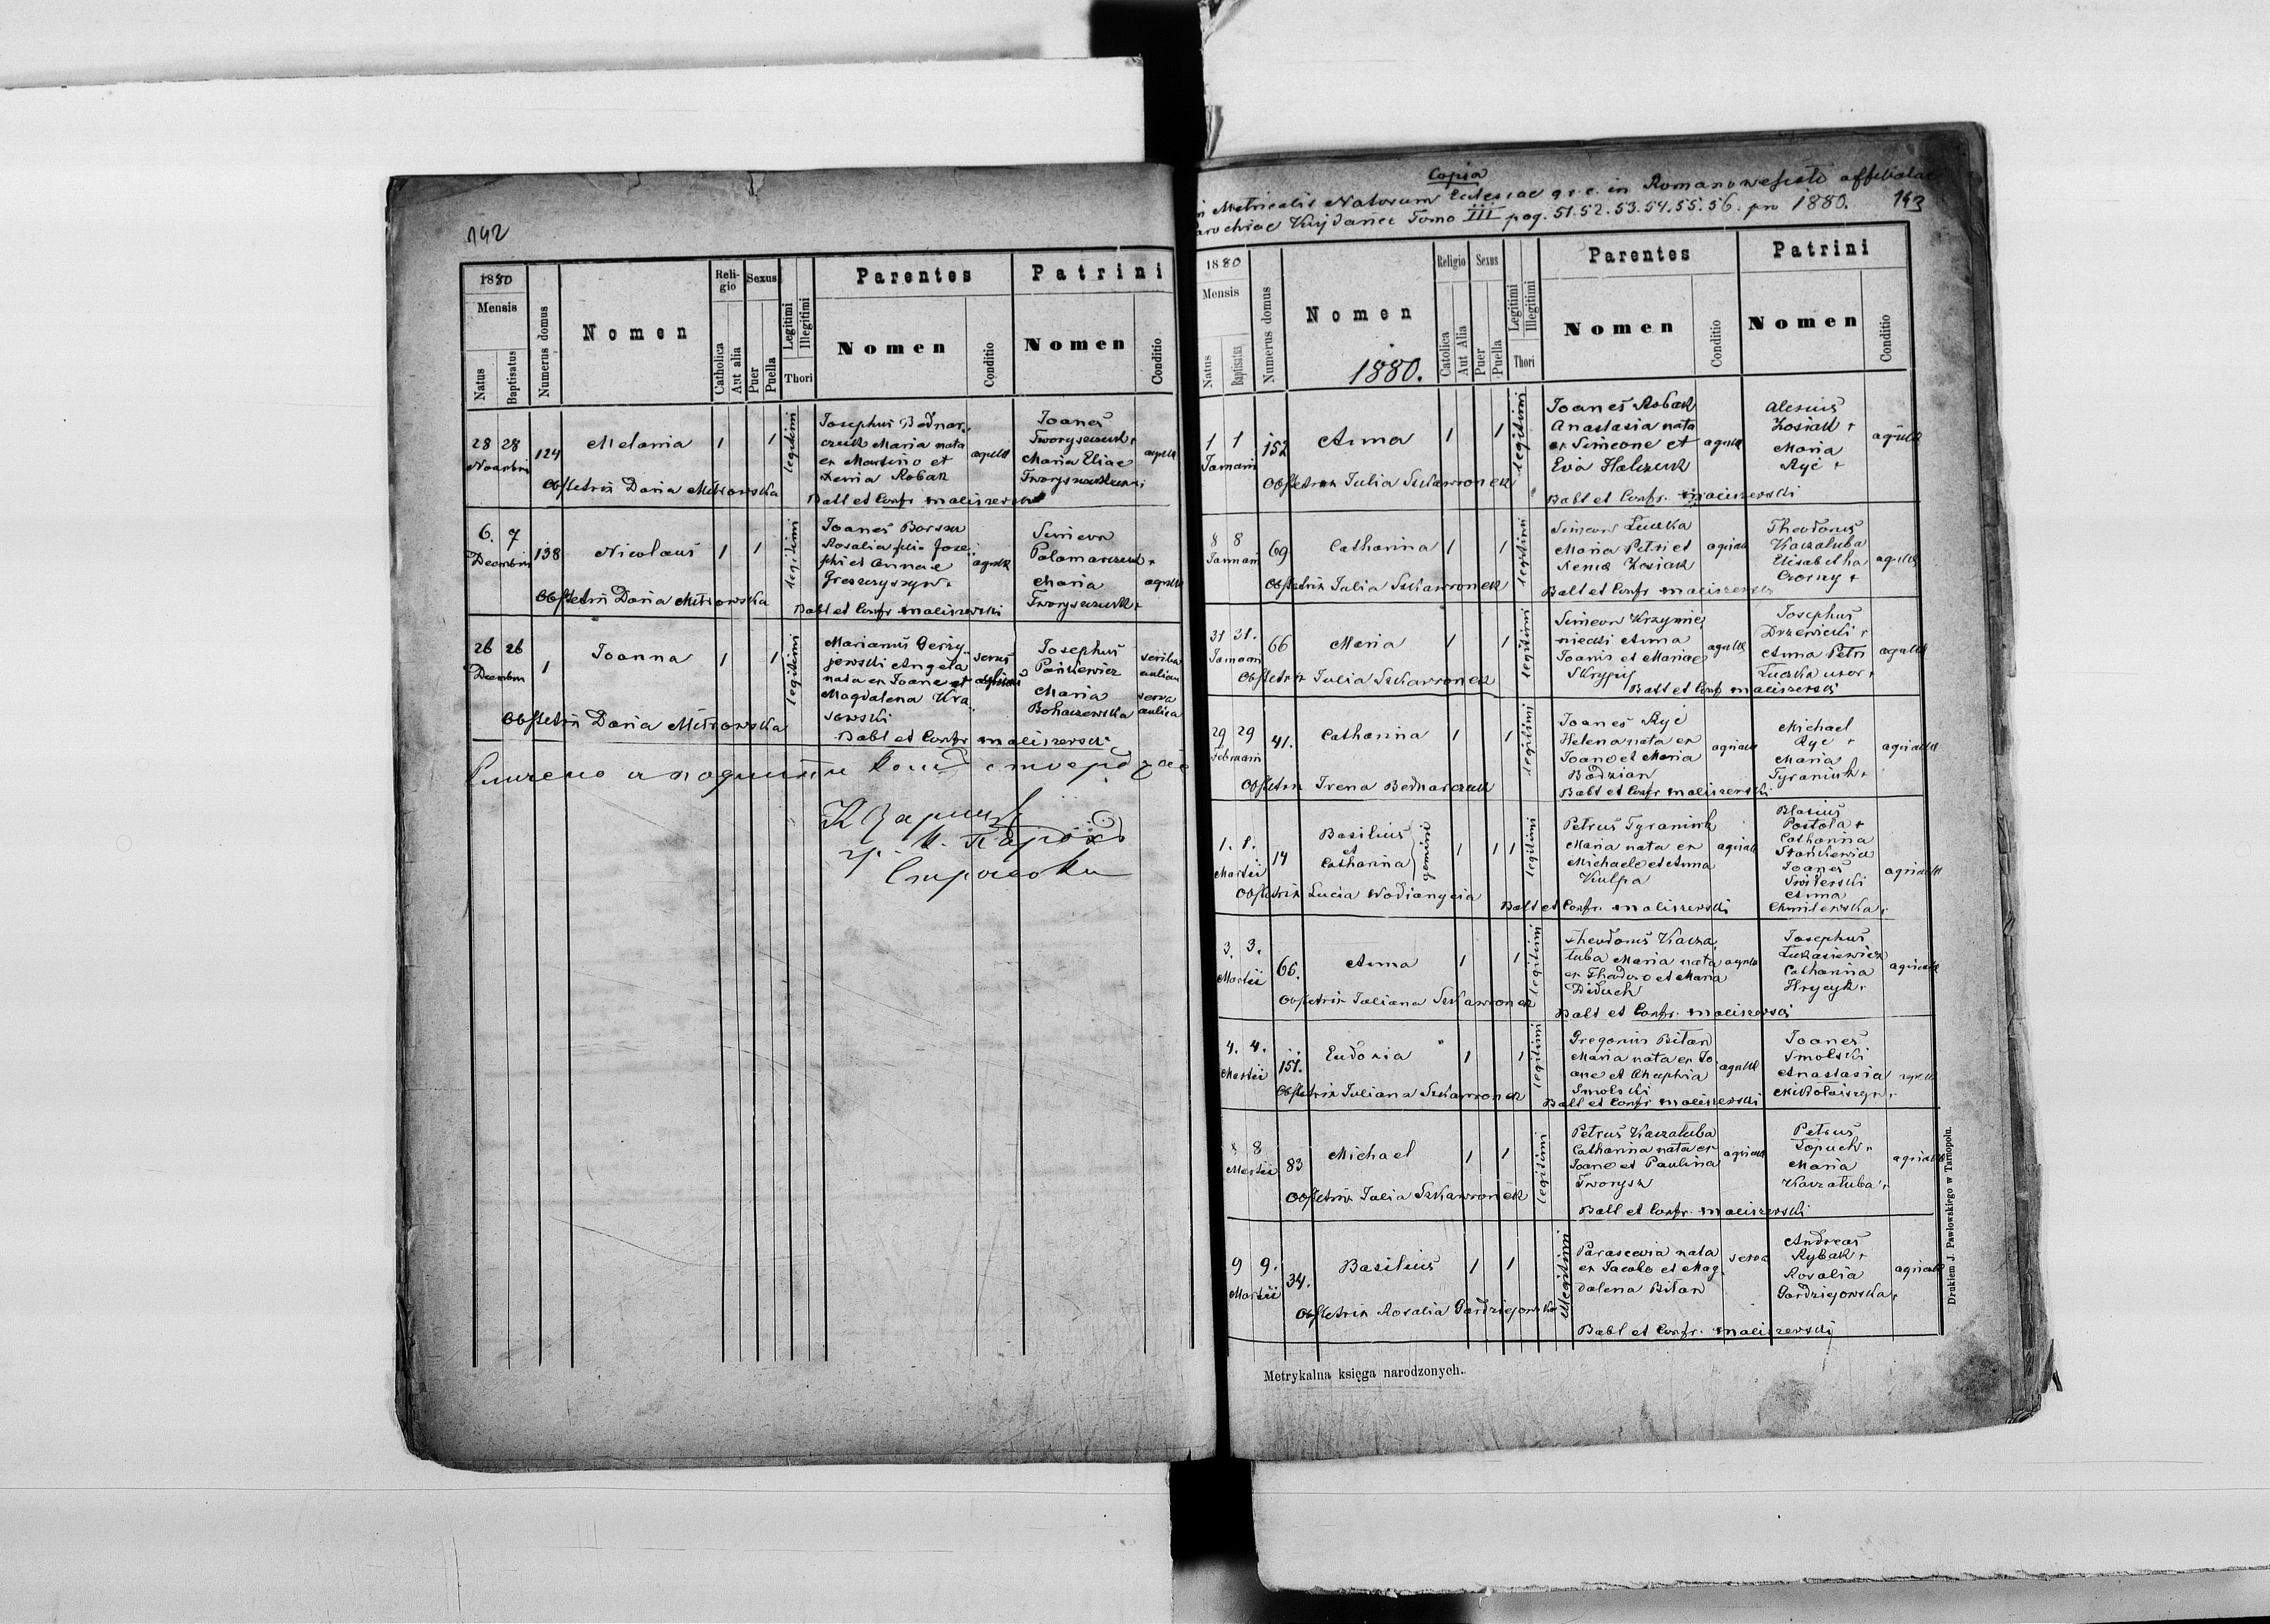 142
1880
Mensis
Natus
Baptisatus
Numerus domus
Nomen
Reli-
gio
Catholica
Aut alia
Sexus
Puer
Puella
Legitimi
Illegitimi
Thori
Parentes
Nomen
Conditio
Patrini
Nomen
Conditio
28 28
124
Melania
1
1
legitimi
Josephus Bednar-
czuk Maria nata
ex Martino et
Xenia Robak
Joanes
Maria Eliae
Obstetrix Daria Mitrowska
Babt et Confr Maliszewski
6. 7
Decembris
138
Nicolaus
1
1
legitimi
Joanes
Rosalia filia Jose
phi et Annae
Simeon
Palamarczuk +
Maria
Tworyszczuk +
Obstetrix Daria Mitrowska
Babt et Confr Maliszewski
26 26
Decembris
1
Joanna
1
1
legitimi
Marianus
Angela
nata ex Joane et
Magdalena Kra
sowski
servus
Josephus
Pańkewicz
Maria
Bohaczewska
scriba
serva
aulica
Obstetrix Daria Mitrowska
Babt et Confr Maliszewski
Copia
Metricalis Natorum Eclesiae g.r.c. in Romanowesioło affiliatae
Parochiae Kujdańce Tomo III pag. 51.52.53.54.55.56. pro 1880.
143
1880
Mensis
Natus
Baptisatus
Numerus domus
Nomen
1880.
Religio
Catolica
Aut Alia
Sexus
Puer
Puella
Legitimi
Illegitimi
Thori
Parentes
Nomen
Conditio
Patrini
Nomen
Conditio
1 1
152
Anna
1
1
legitimi
Joanes Robak
Anastasia nata
ex Simeone et
Eva Halczuk
Alexius
Kosiak +
Maria
Ryc +
Obstetrix Julia Szkawronek
Babt et Confr. Maliszewski
8 8
69
Catharina
1
1
legitimi
Simeon Luczka
Maria Petri et
Xenia Kosiak
Theodorus
Kaczaluba
Elisabetha
Czorny +
Obstetrix Julia Szkawronek
Babt et Confr Maliszewski
31 31.
66
Maria
1
1
legitimi
Simeon Krzymie
niecki Anna
Joanis et Mariae
Skrypij
Josephus
Drzewicki +
Anna Petri
Luczka uxor +
Obstetrix Julia Szkawronek
Babt et Confr Maliszewski
29 29
41.
Catharina
1
1
legitimi
Joanes Ryc
Helena nata ex
Joane et Maria
Badzian
Michael
Ryc +
Maria
Tyraniuk +
Obstetrix Irena Bednarczuk
Babt et Confr Maliszewski
1. 1.
Martii
14
Basilius
et
Catharina
gemini
1
1 1
legitimi
Petrus Tyraniuk
Maria nata ex
Michaele et Anna
Kulpa
Blasius
Postola +
Catharina
Stankewicz
Joanes
Anna
Chmilewska +
Obstetrix Lucia
Babt et Confr. Maliszewski
3. 3.
Martii
66.
Anna
1
1
legitimi
Theodorus Kacza
luba Maria nata
ex Theodoro et Maria
Diduch
Josephus
Lukasiewicz
Catharina
Hrycyk +
Obstetrix Juliana Szkawronek
Babt et Confr. Maliszewski
4. 4.
Martii
151.
Eudoxia
1
1
legitimi
Gregorius Bitan
Maria nata ex Jo
ane et
Smolski
Joanes
Smolski
Anastasia
Mikołaiszyn +
Obstetrix Juliana Szkawronek
Babt et Confr Maliszewski
8 8
Martii
83
Michael
1
1
legitimi
Petrus Kaczaluba
Catharina nata ex
Joane et Paulina
Tworysz
Petrus
Łopuch +
Maria
Kaczaluba +
Obstetrix Julia Szkawronek
Babt et Confr. Maliszewski
9 9.
Martii
34.
Basilius
1
1
Illegitimi
Parascevia nata
ex Jacobo et Mag
dalena Bitan
serva
Andreas
Rybak +
Rosalia
Gardziejowska +
Obstetrix Rosalia Gardziejowska
Babt et Confr. Maliszewski
Metrykalna księga narodzonych.
Drukiem J. Pawłowskiego w Tarnopolu.